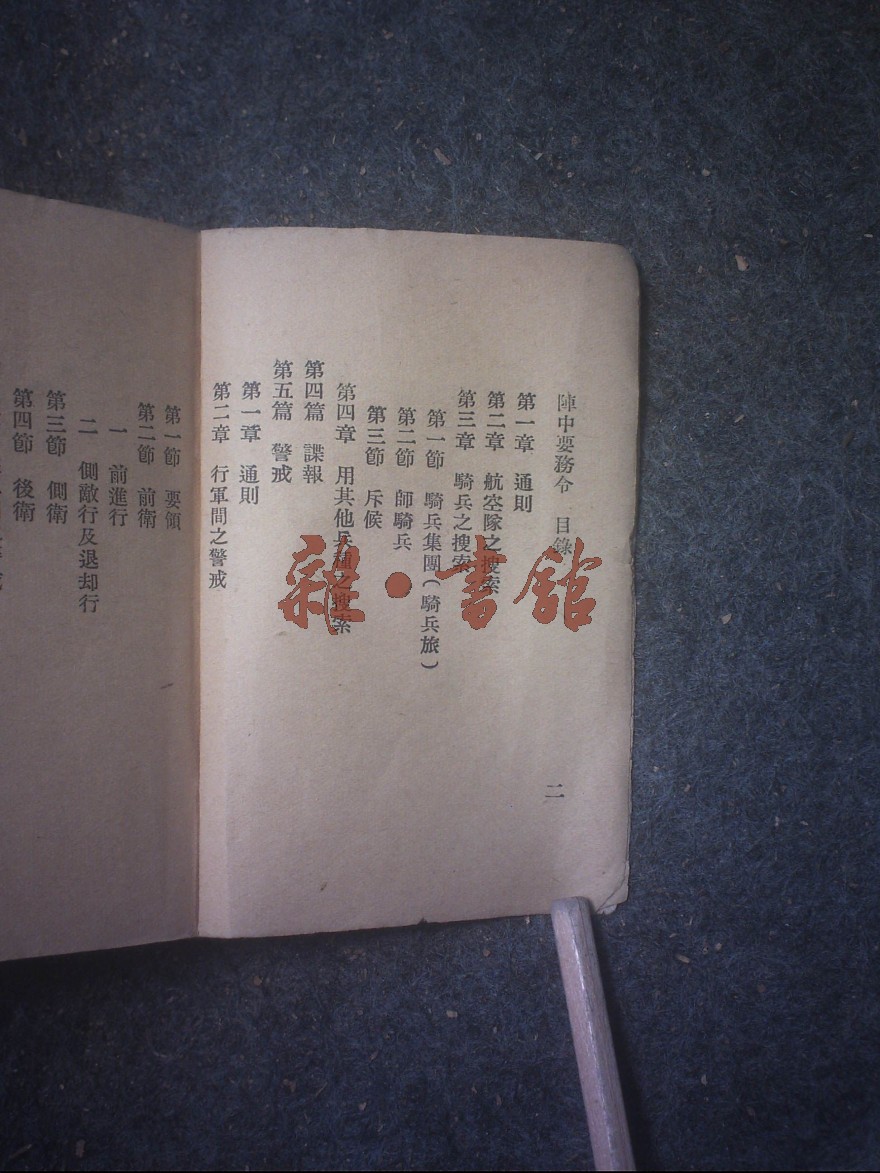 陣中要務令　目錄
第一章　通則
第二章　航空隊之搜索
第三章　騎兵之搜索
第一節　騎兵集團（騎兵旅）
第二節　師騎兵
第三節　斥候
第四章　用其他兵種之搜索
第四篇　諜報
第五篇　警戒
第一章　通則
第二章　行軍間之警戒
二
第一節　要領
第二節　前衛
一　前進行
二　側敵行及退却行
第三節　側衛
第四節　後衛
雜·書館